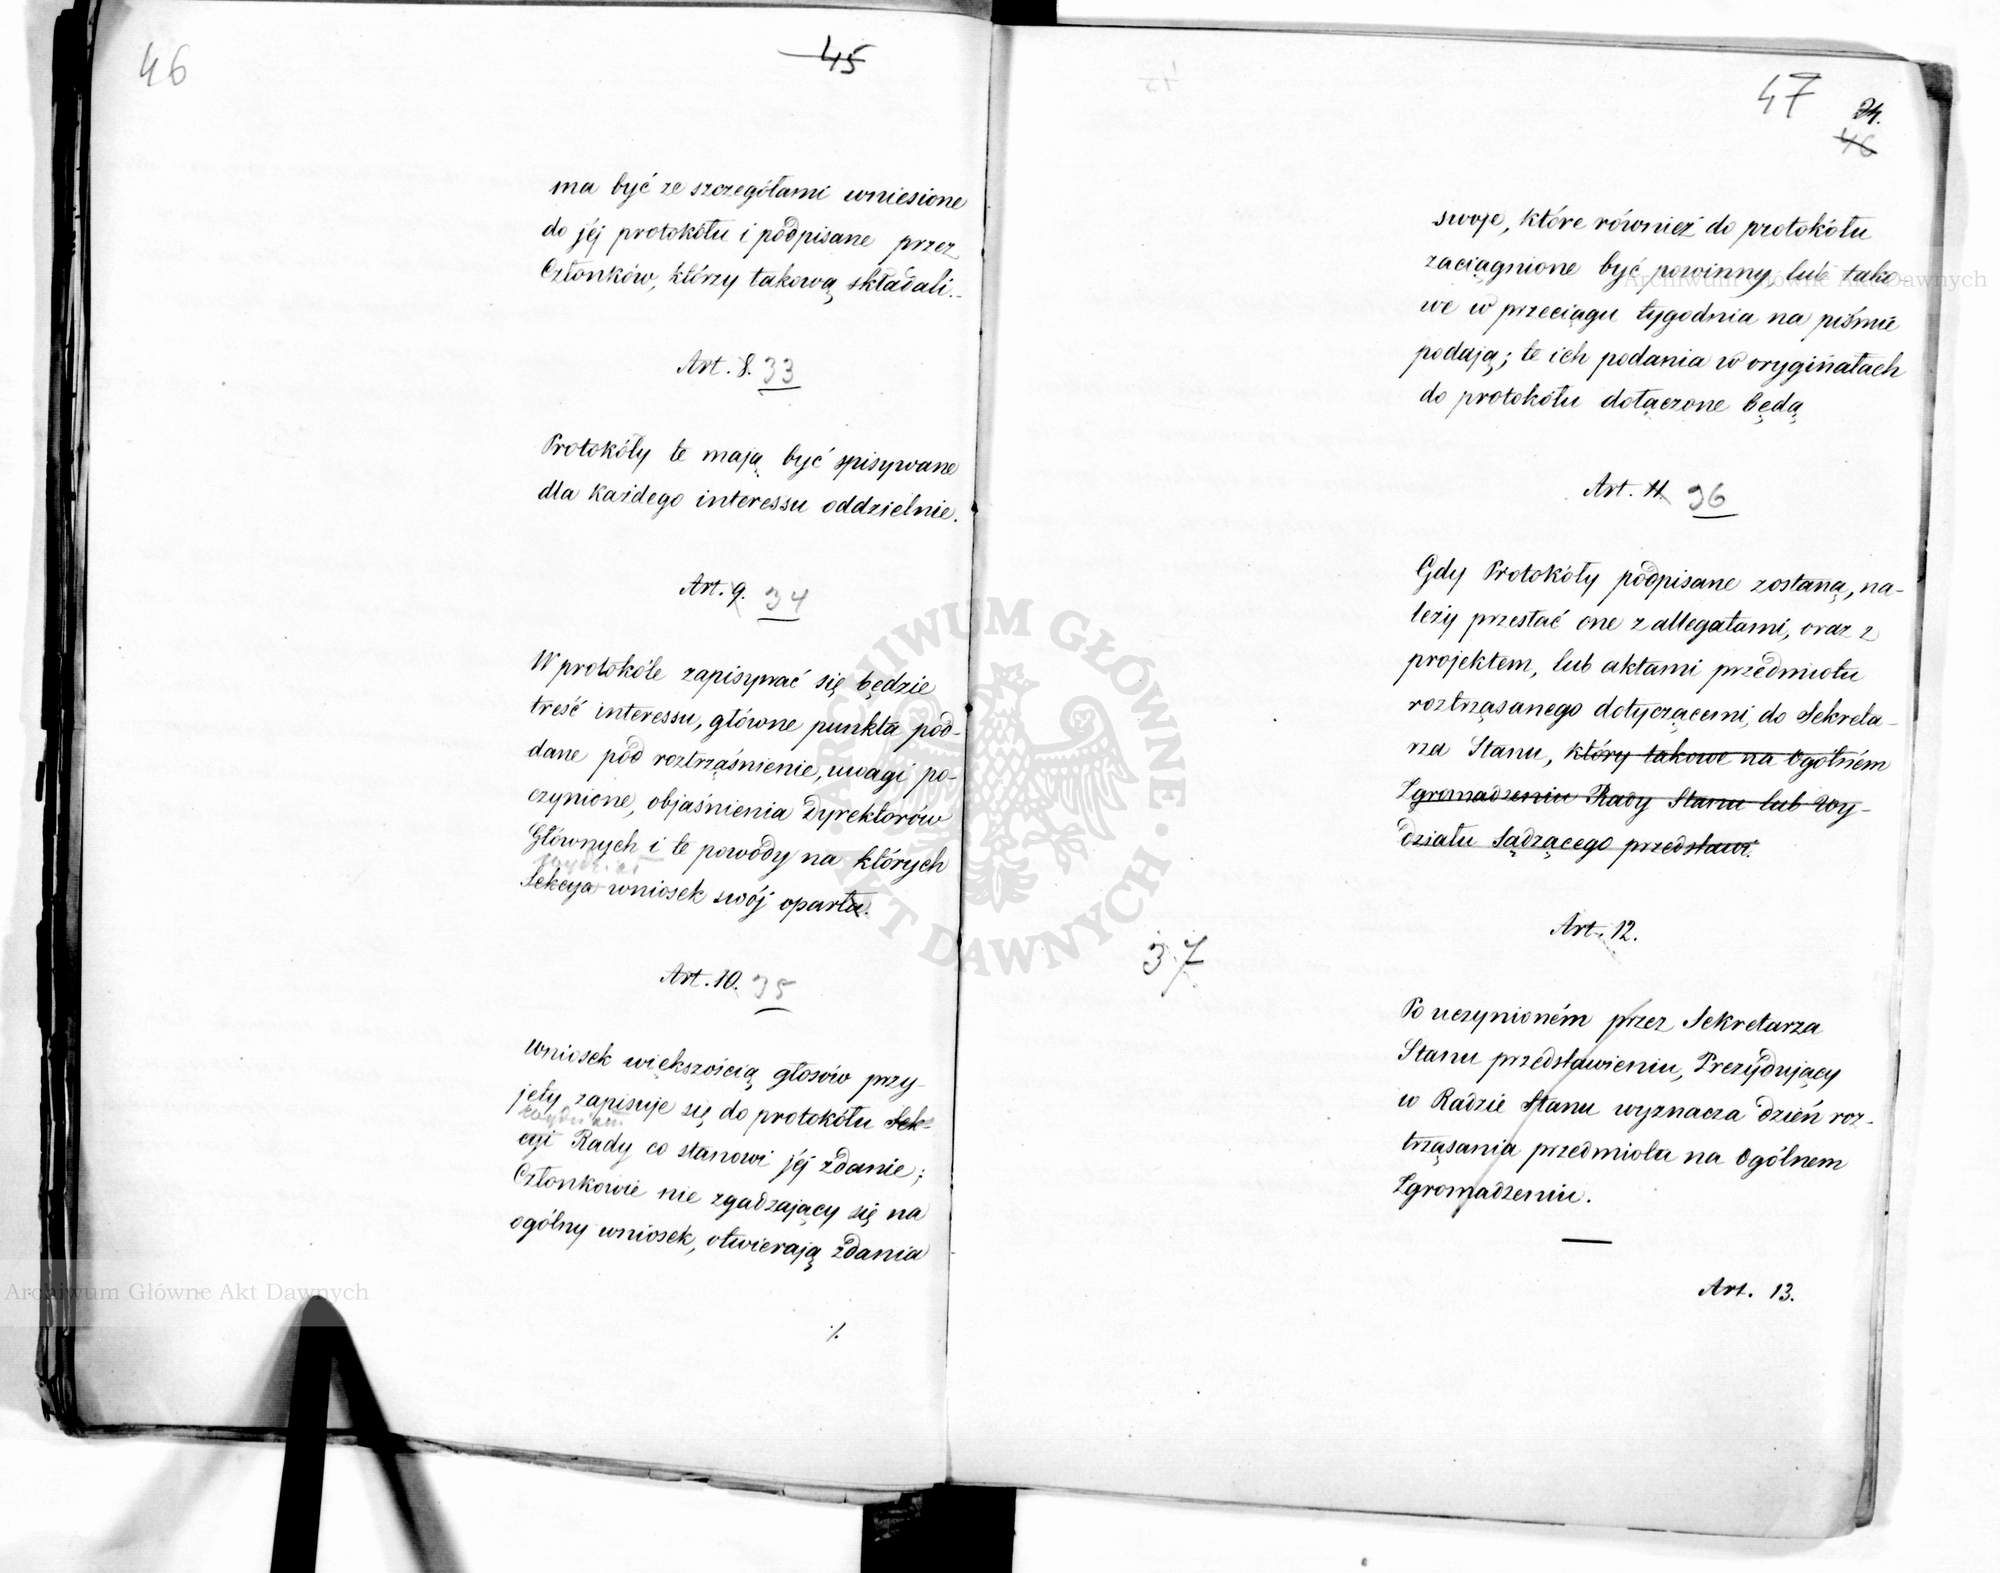 46
45
ma być ze szczegółami wniesione
do jéj protokółu i podpisane przez
Członków, którzy takową składali.
Art. 8. 33
Protokóły te mają być spisywane
dla każdego interessu oddzielnie.
Art. 9. 34
W protokóle zapisywać się będzie
treść interessu, główne punkta pod-
dane pod roztrząśnienie, uwagi po-
czynione, objaśnienia Dyrektorów
Głównych i te powody na których
wydział
Sekcya wniosek swój oparła.
Art. 10. 35
Wniosek większością głosów przy-
jęty zapisuje się do protokółu Sek-
wydziału
cyi Rady co stanowi jéj zdanie;
Członkowie nie zgadzający się na
ogólny wniosek, otwierają zdania
./.
47
24.
46
swoje, które również do protokółu
zaciągnione być powinny, lub tako
we w przeciągu tygodnia na piśmie
podają; te ich podania w oryginałach
do protokółu dołączone będą
Art. 11 36
Gdy Protokóły podpisane zostaną, na-
leży przesłać one z allegatami, oraz z
projektem, lub aktami przedmiotu
roztrząsanego dotyczącemi, do Sekreta-
rza Stanu, który takowe na Ogólném
Zgromadzeniu Rady Stanu lub Wy-
działu Sądzącego przedstawi.
Art. 12.
37
Po uczynioném przez Sekretarza
Stanu przedstawieniu, Prezydujący
w Radzie Stanu wyznacza dzień roz-
trząsania przedmiotu na Ogólnem
Zgromadzeniu.
Art. 13.
Archiwum Główne Akt Dawnych
Archiwum Główne Akt Dawnych
ARCHIWUM GŁÓWNE · AKT DAWNYCH ·